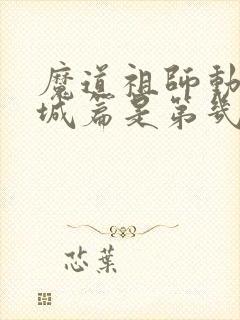 魔道祖師動
城篇是第幾
芯葉